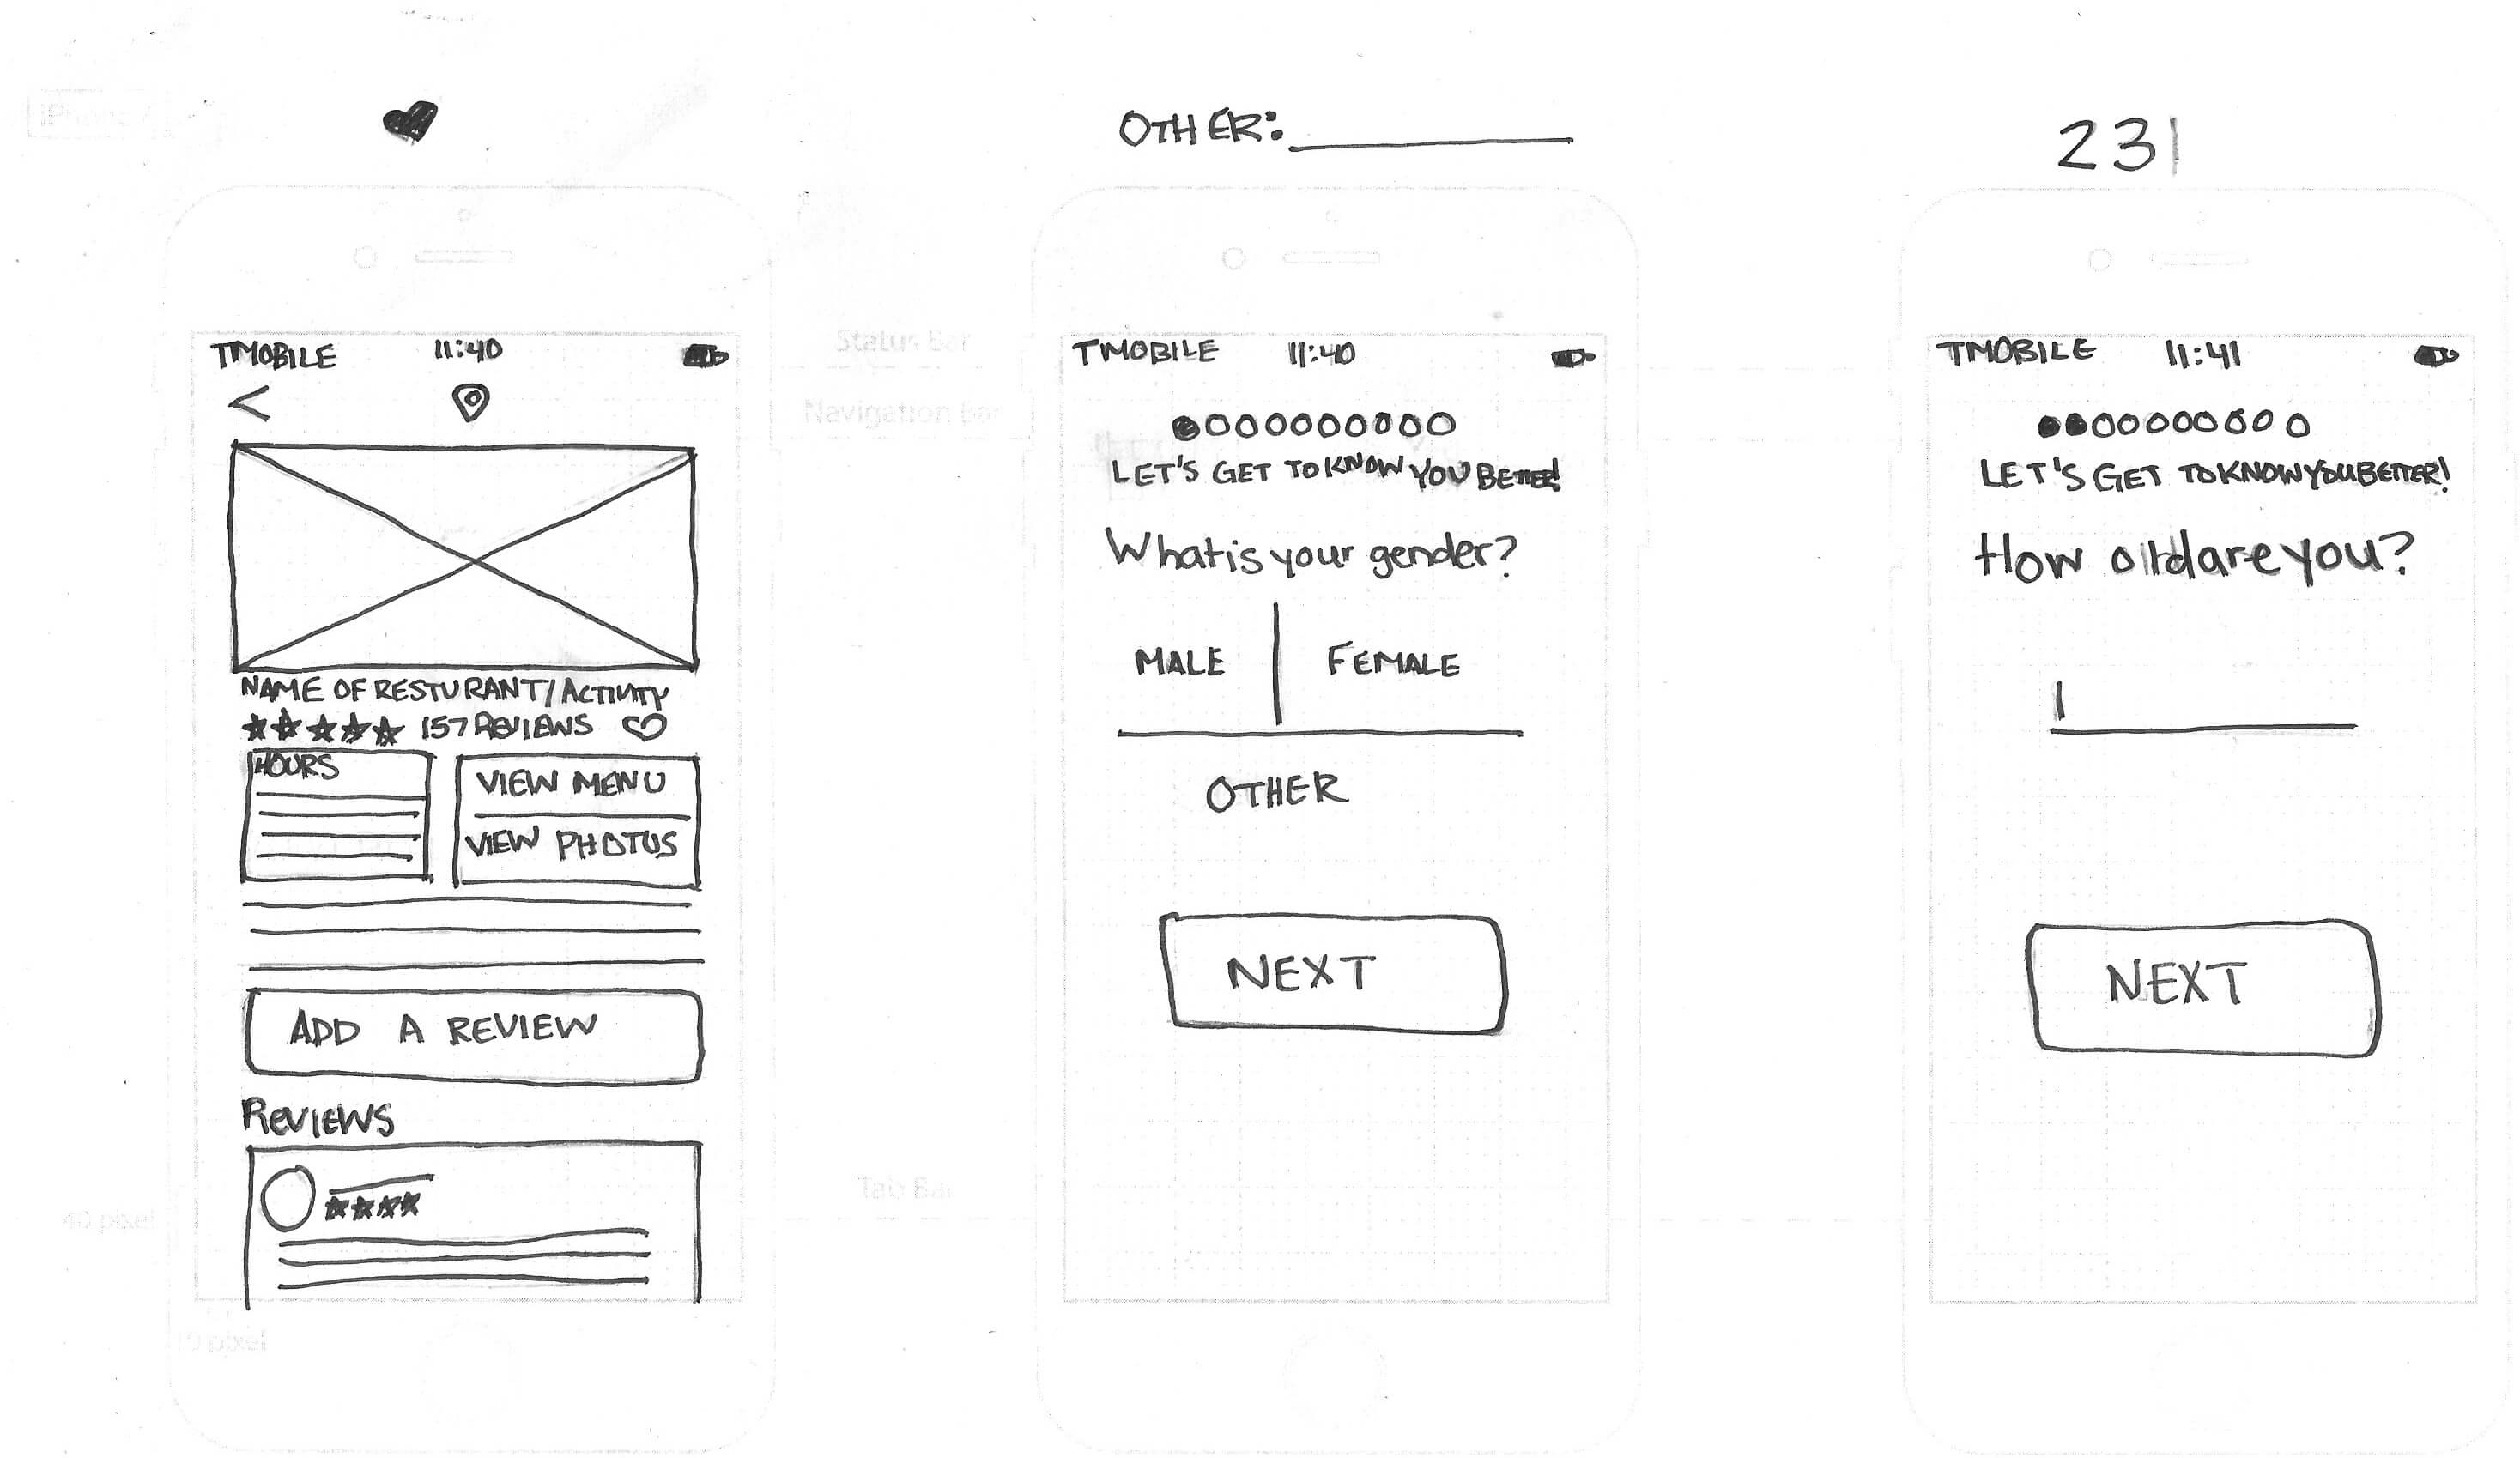 OTHER:
23
TMOBILE 11:40
<
NAME OF RESTURANT/ACTIVITY
157 REVIEWS
HOURS
VIEW MENU
VIEW PHOTOS
ADD A REVIEW
REVIEWS
Status Bar
Navigation Bar
Tab Bar
40 pixel
TMOBILE 11:40
LET'S GET TO KNOW YOU BETTER!
What is your gender?
MALE FEMALE
OTHER
NEXT
TMOBILE 11:41
LET'S GET TO KNOW YOU BETTER!
How old are you?
NEXT